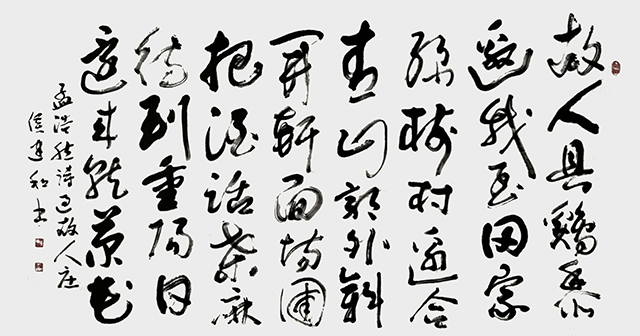 故人具鷄黍
邀我至田家
绿树村边合
青山郭外斜
开轩面场圃
把酒话桑麻
待到重阳日
还来就菊花
孟浩然诗过故人庄
侯建和书